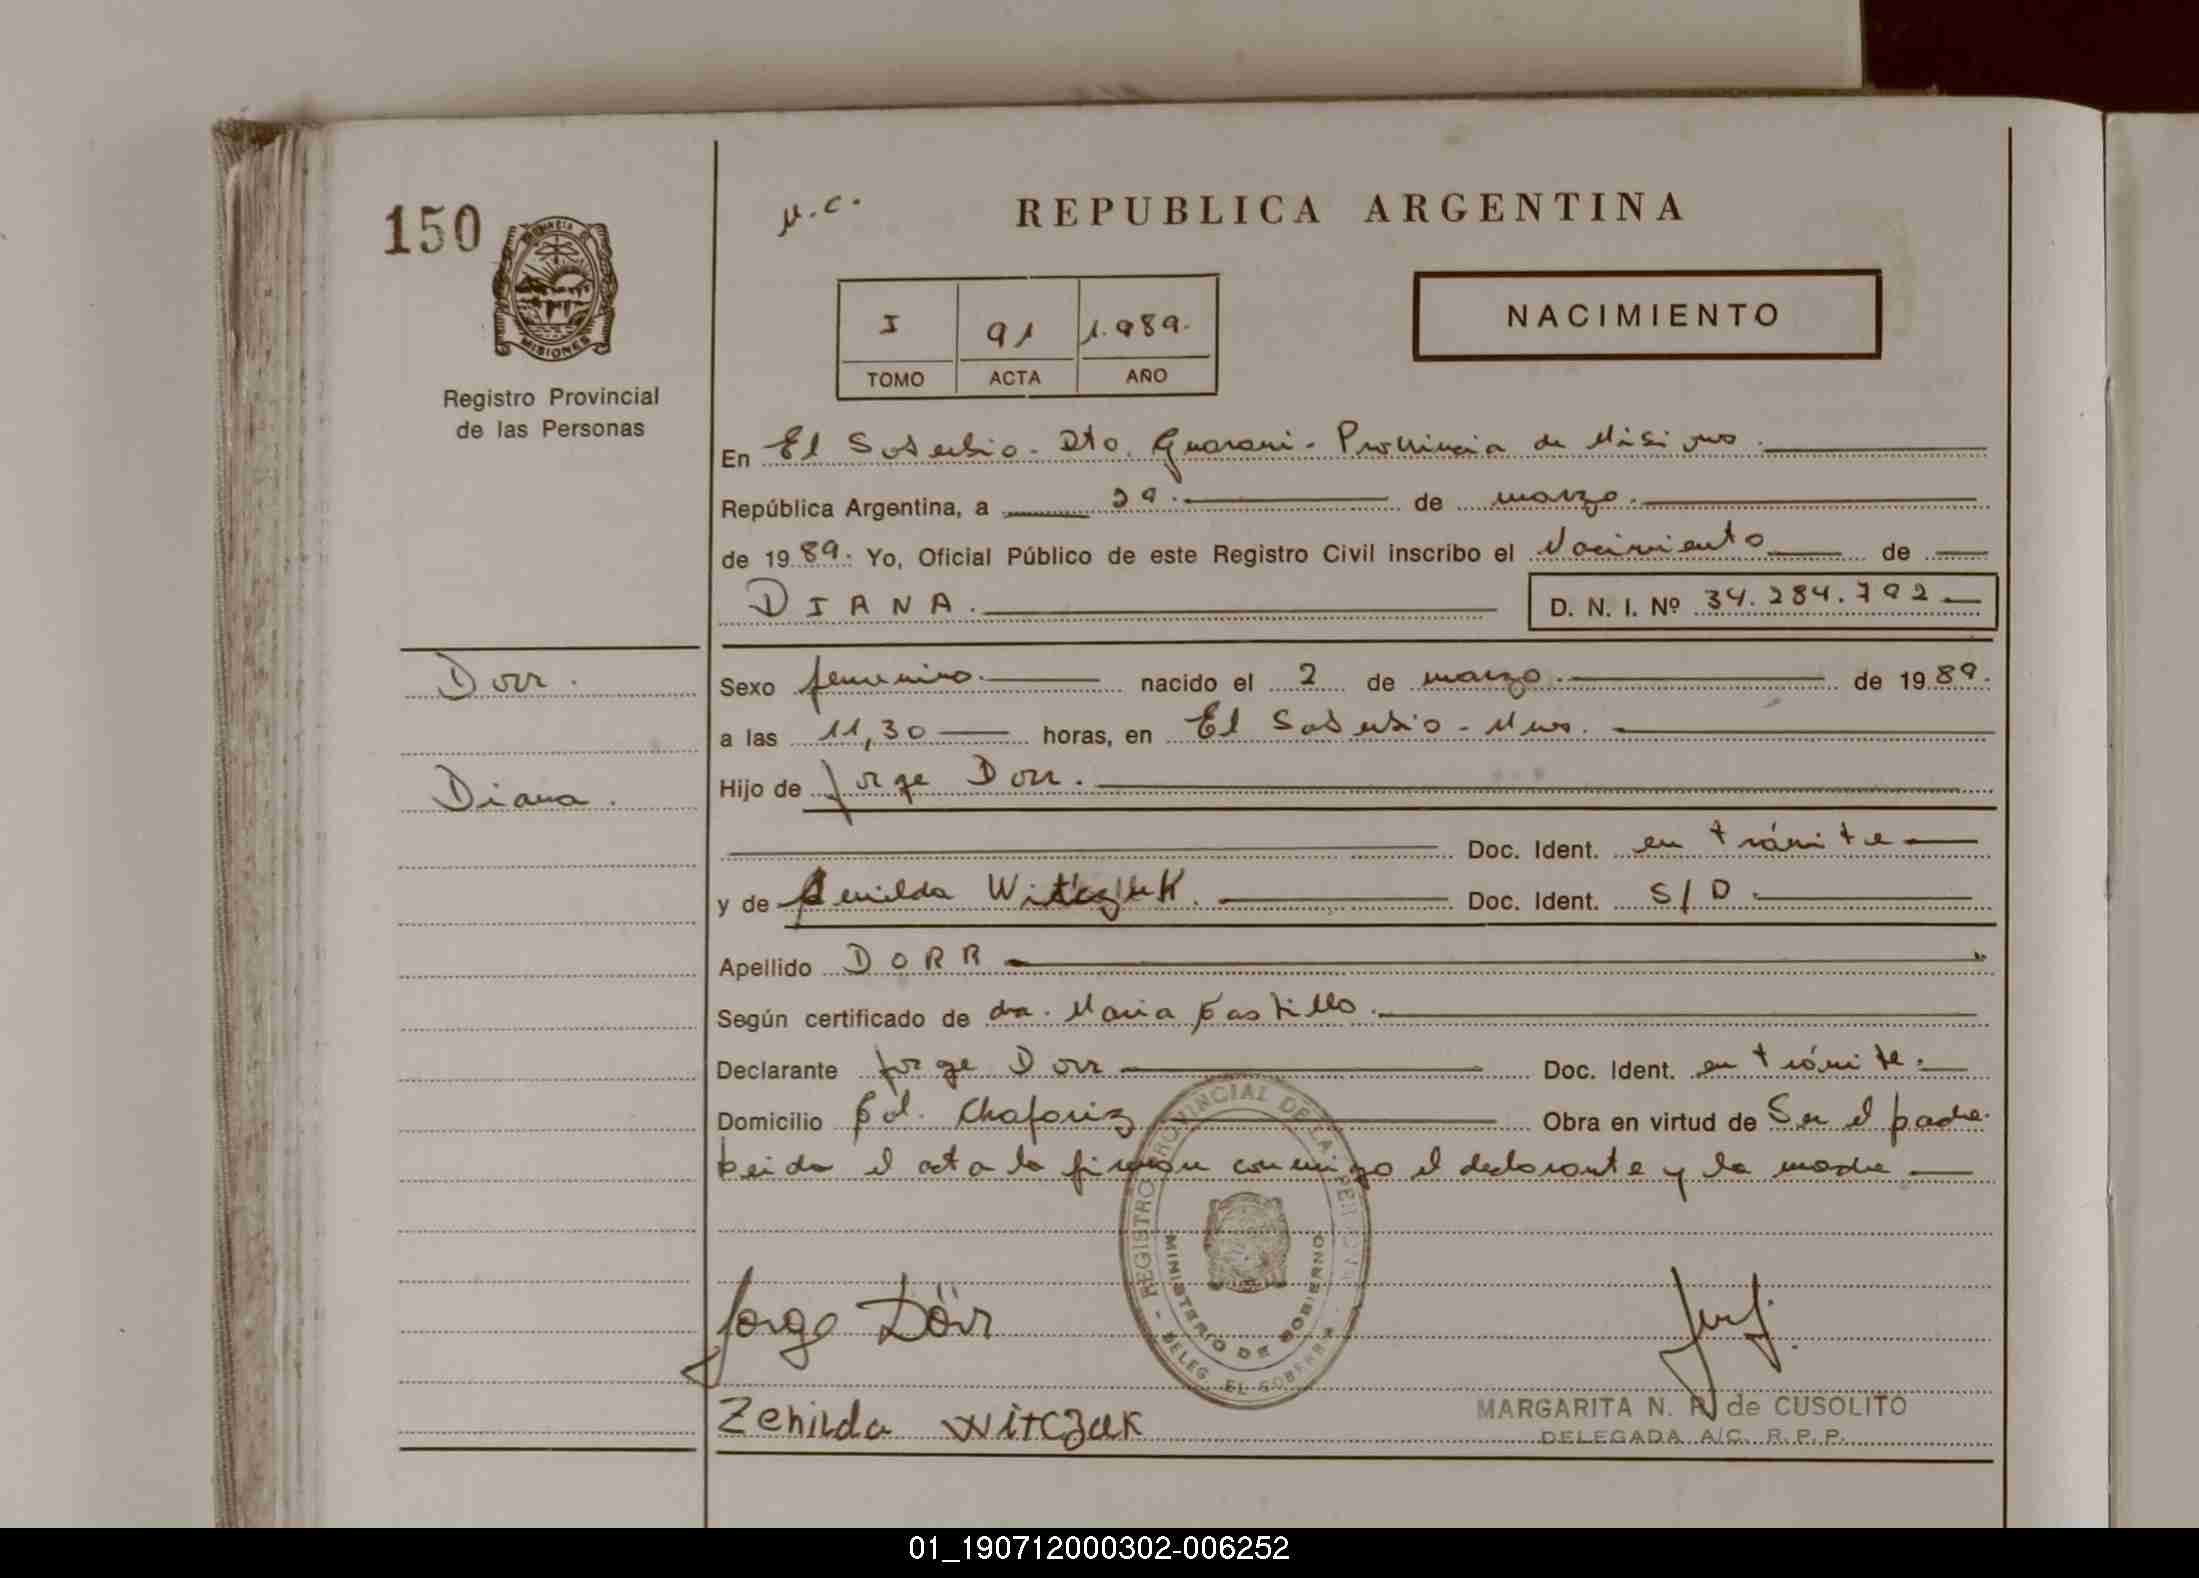 150
μ.c.
REPUBLICA ARGENTINA
PROVINCIA DE MISIONES
Registro Provincial
de las Personas
I 91 1.989.
TOMO ACTA AÑO
NACIMIENTO
En El Soberbio - Dto. Guarani - Provincia de Misiones.
República Argentina, a 29. de marzo.
de 1989. Yo, Oficial Público de este Registro Civil inscribo el Nacimiento de
DIANA. D. N. I. Nº 34.284.792
Dorr.
Sexo femenino. nacido el 2 de marzo. de 1989.
a las 11,30 horas, en El Soberbio - Mnes.
Diana.
Hijo de Jorge Dorr.
Doc. Ident. en trámite
y de Zenilda Witczak. Doc. Ident. S/D.
Apellido DORR
Según certificado de dra. Maria Castillo.
Declarante Jorge Dorr Doc. Ident. en trámite.
Domicilio Col. Chafariz Obra en virtud de Ser el padre.
Leida el acta la firman conmigo el declarante y la madre
REGISTRO PROVINCIAL DE LAS PERSONAS
MINISTERIO DE GOBIERNO
- DELEG. EL SOBERBIO
Jorge Dörr
Zenilda Witczak
MARGARITA N. P. de CUSOLITO
DELEGADA A/C. R.P.P.
01_190712000302-006252